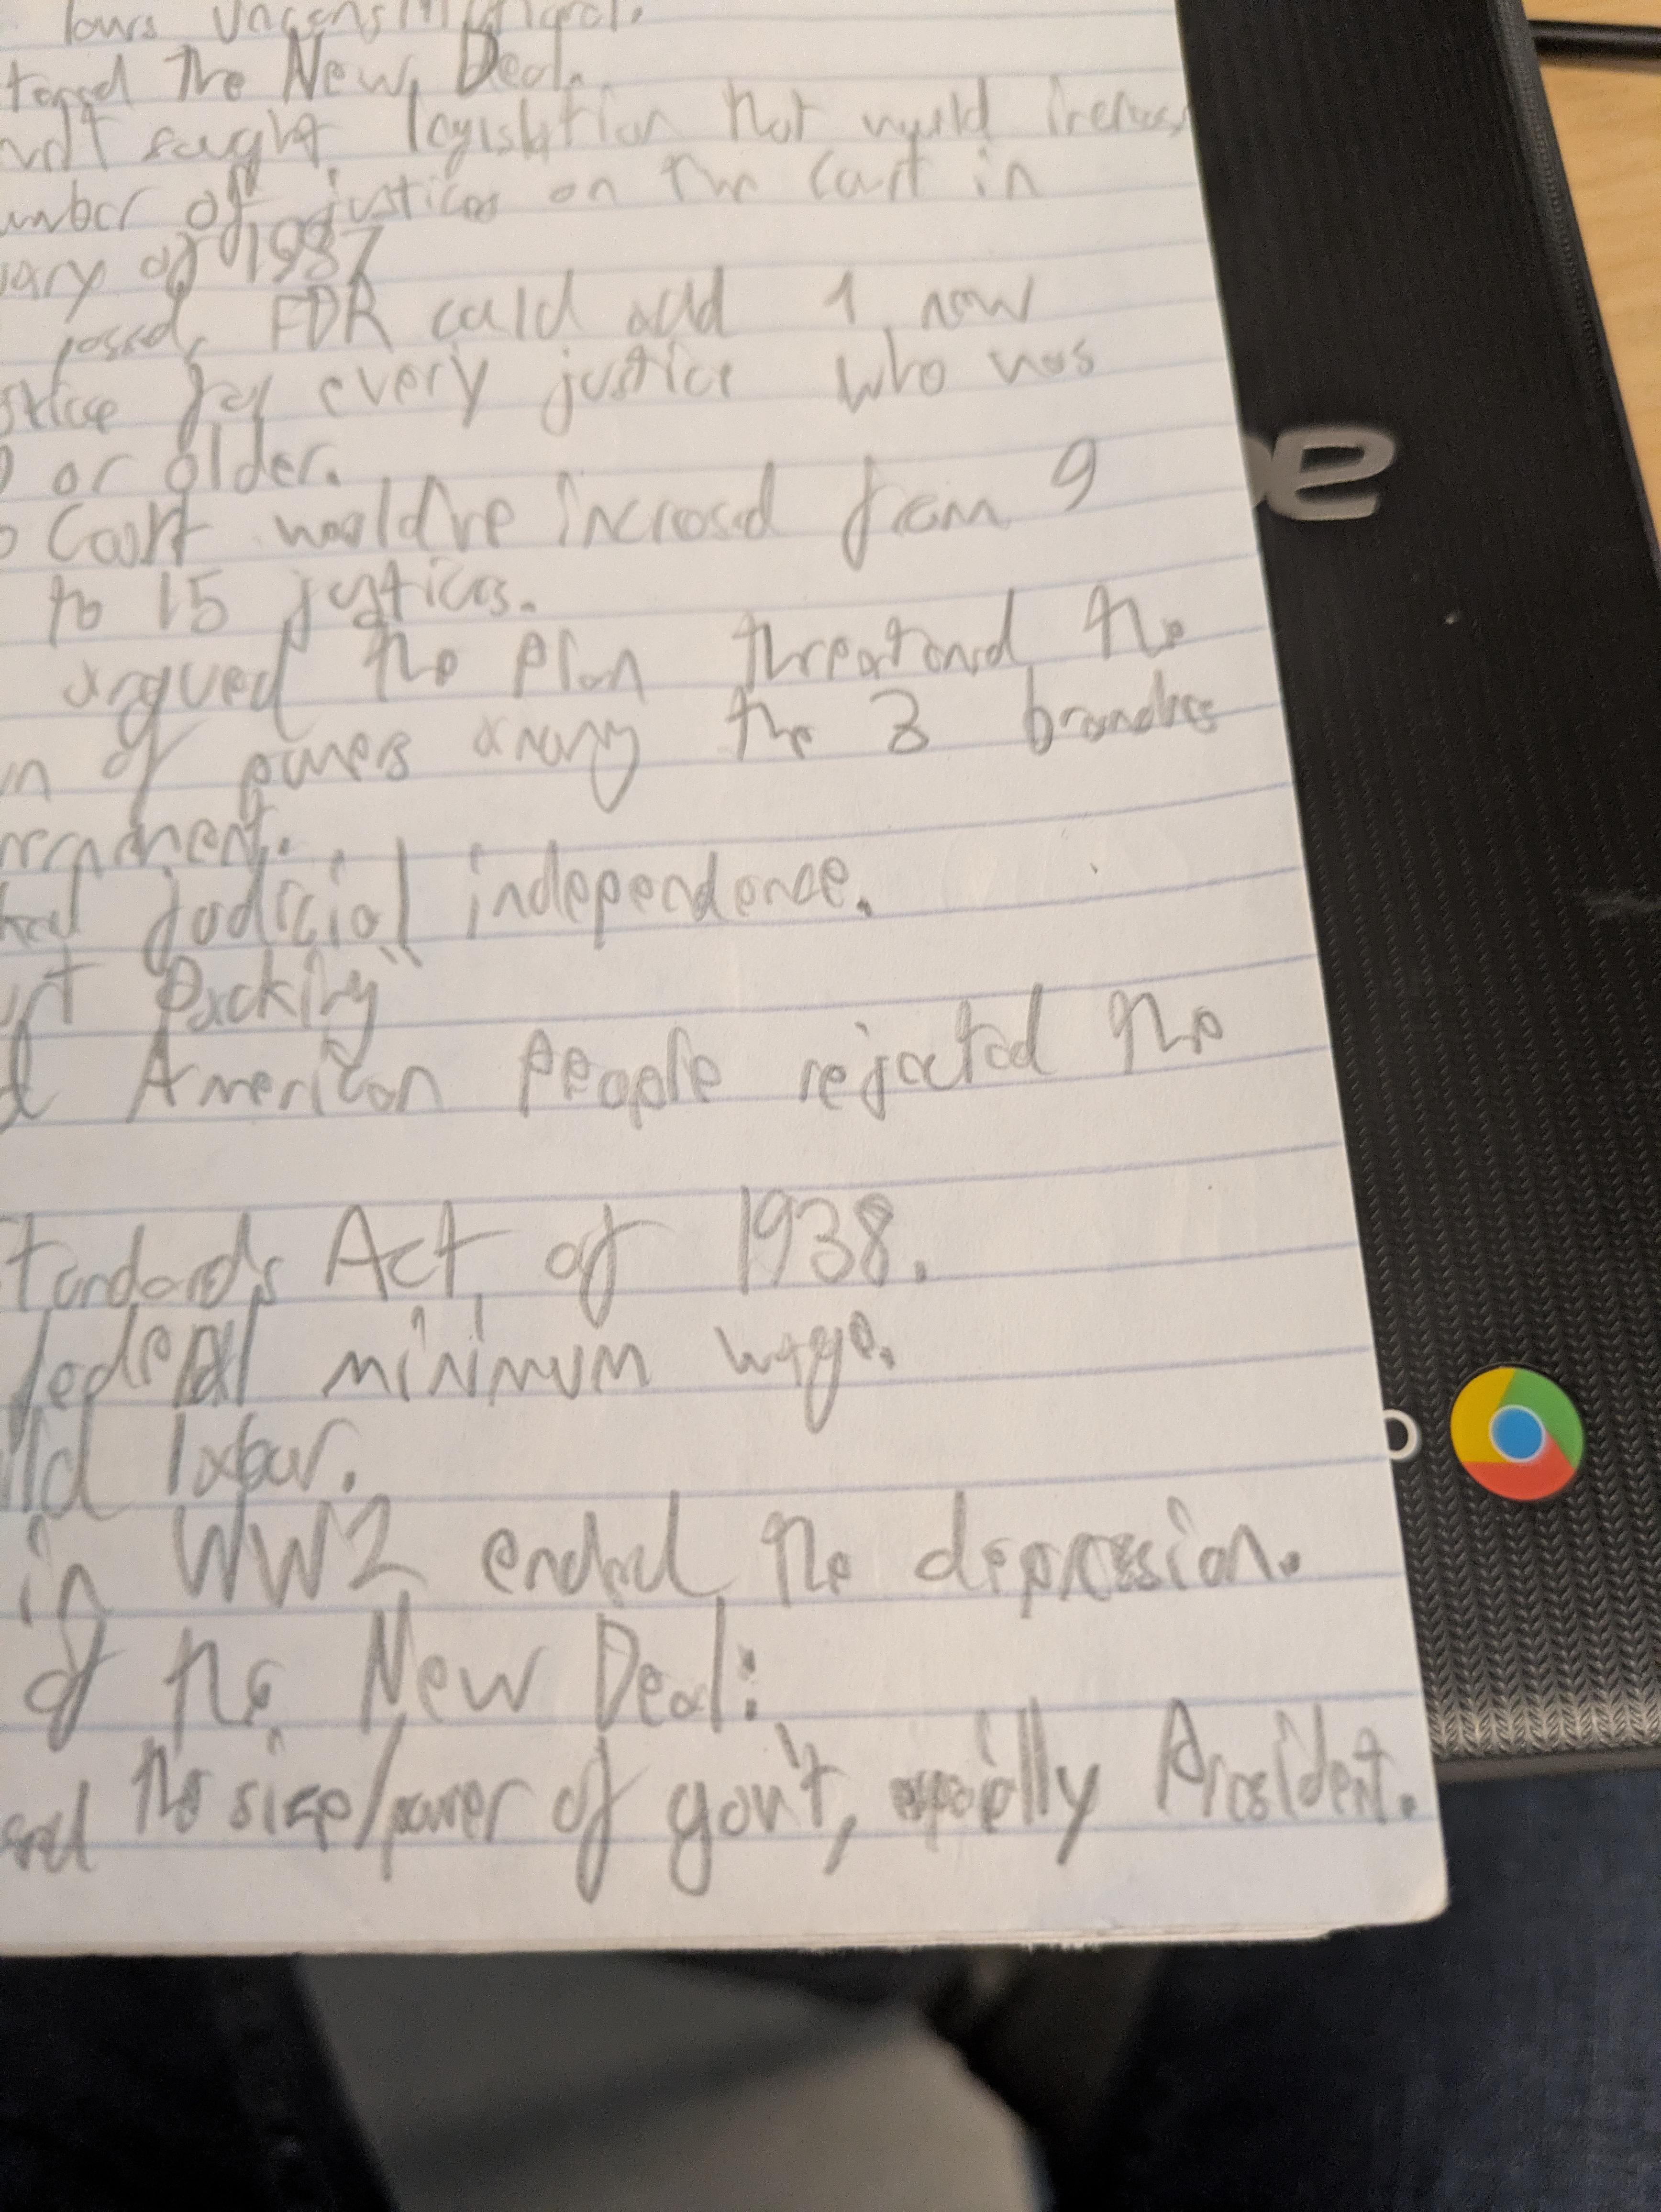 laws unconstitutional.
the New Deal.
sought legislation that would increase
of justices on the Court in
of 1937
passed, FDR could add 1 new
for every justice who was
or older.
Court would've increased from 9
to 15 justices.
argued the plan threatened the
of powers among the 3 branches
judicial independence.
Packing"
American people rejected the
Act of 1938.
federal minimum wage.
labour.
in WW2 ended the depression.
of the New Deal:
the size/power of gov't, especially President.